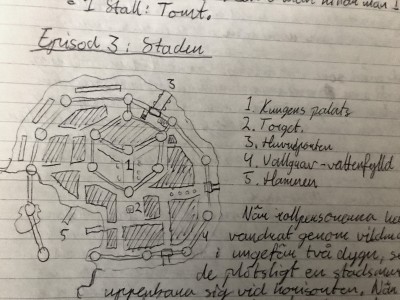 1 Stall: Tomt.
Episod 3: Staden
3
1
2
5
4
1. Kungens palats
2. Torget.
3. Huvudporten
4. Vallgrav - vattenfylld
5. Hamnen
När rollpersonerna ha
vandrat genom vildma
i ungefär två dygn, se
de plötsligt en stadsmur
uppenbara sig vid horisonten. När